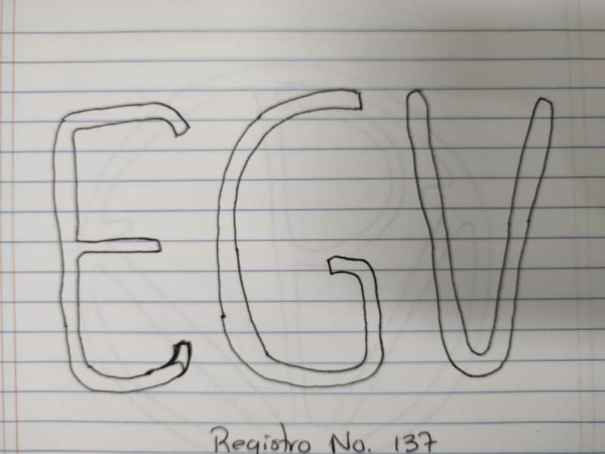 EGV
Registro No. 137